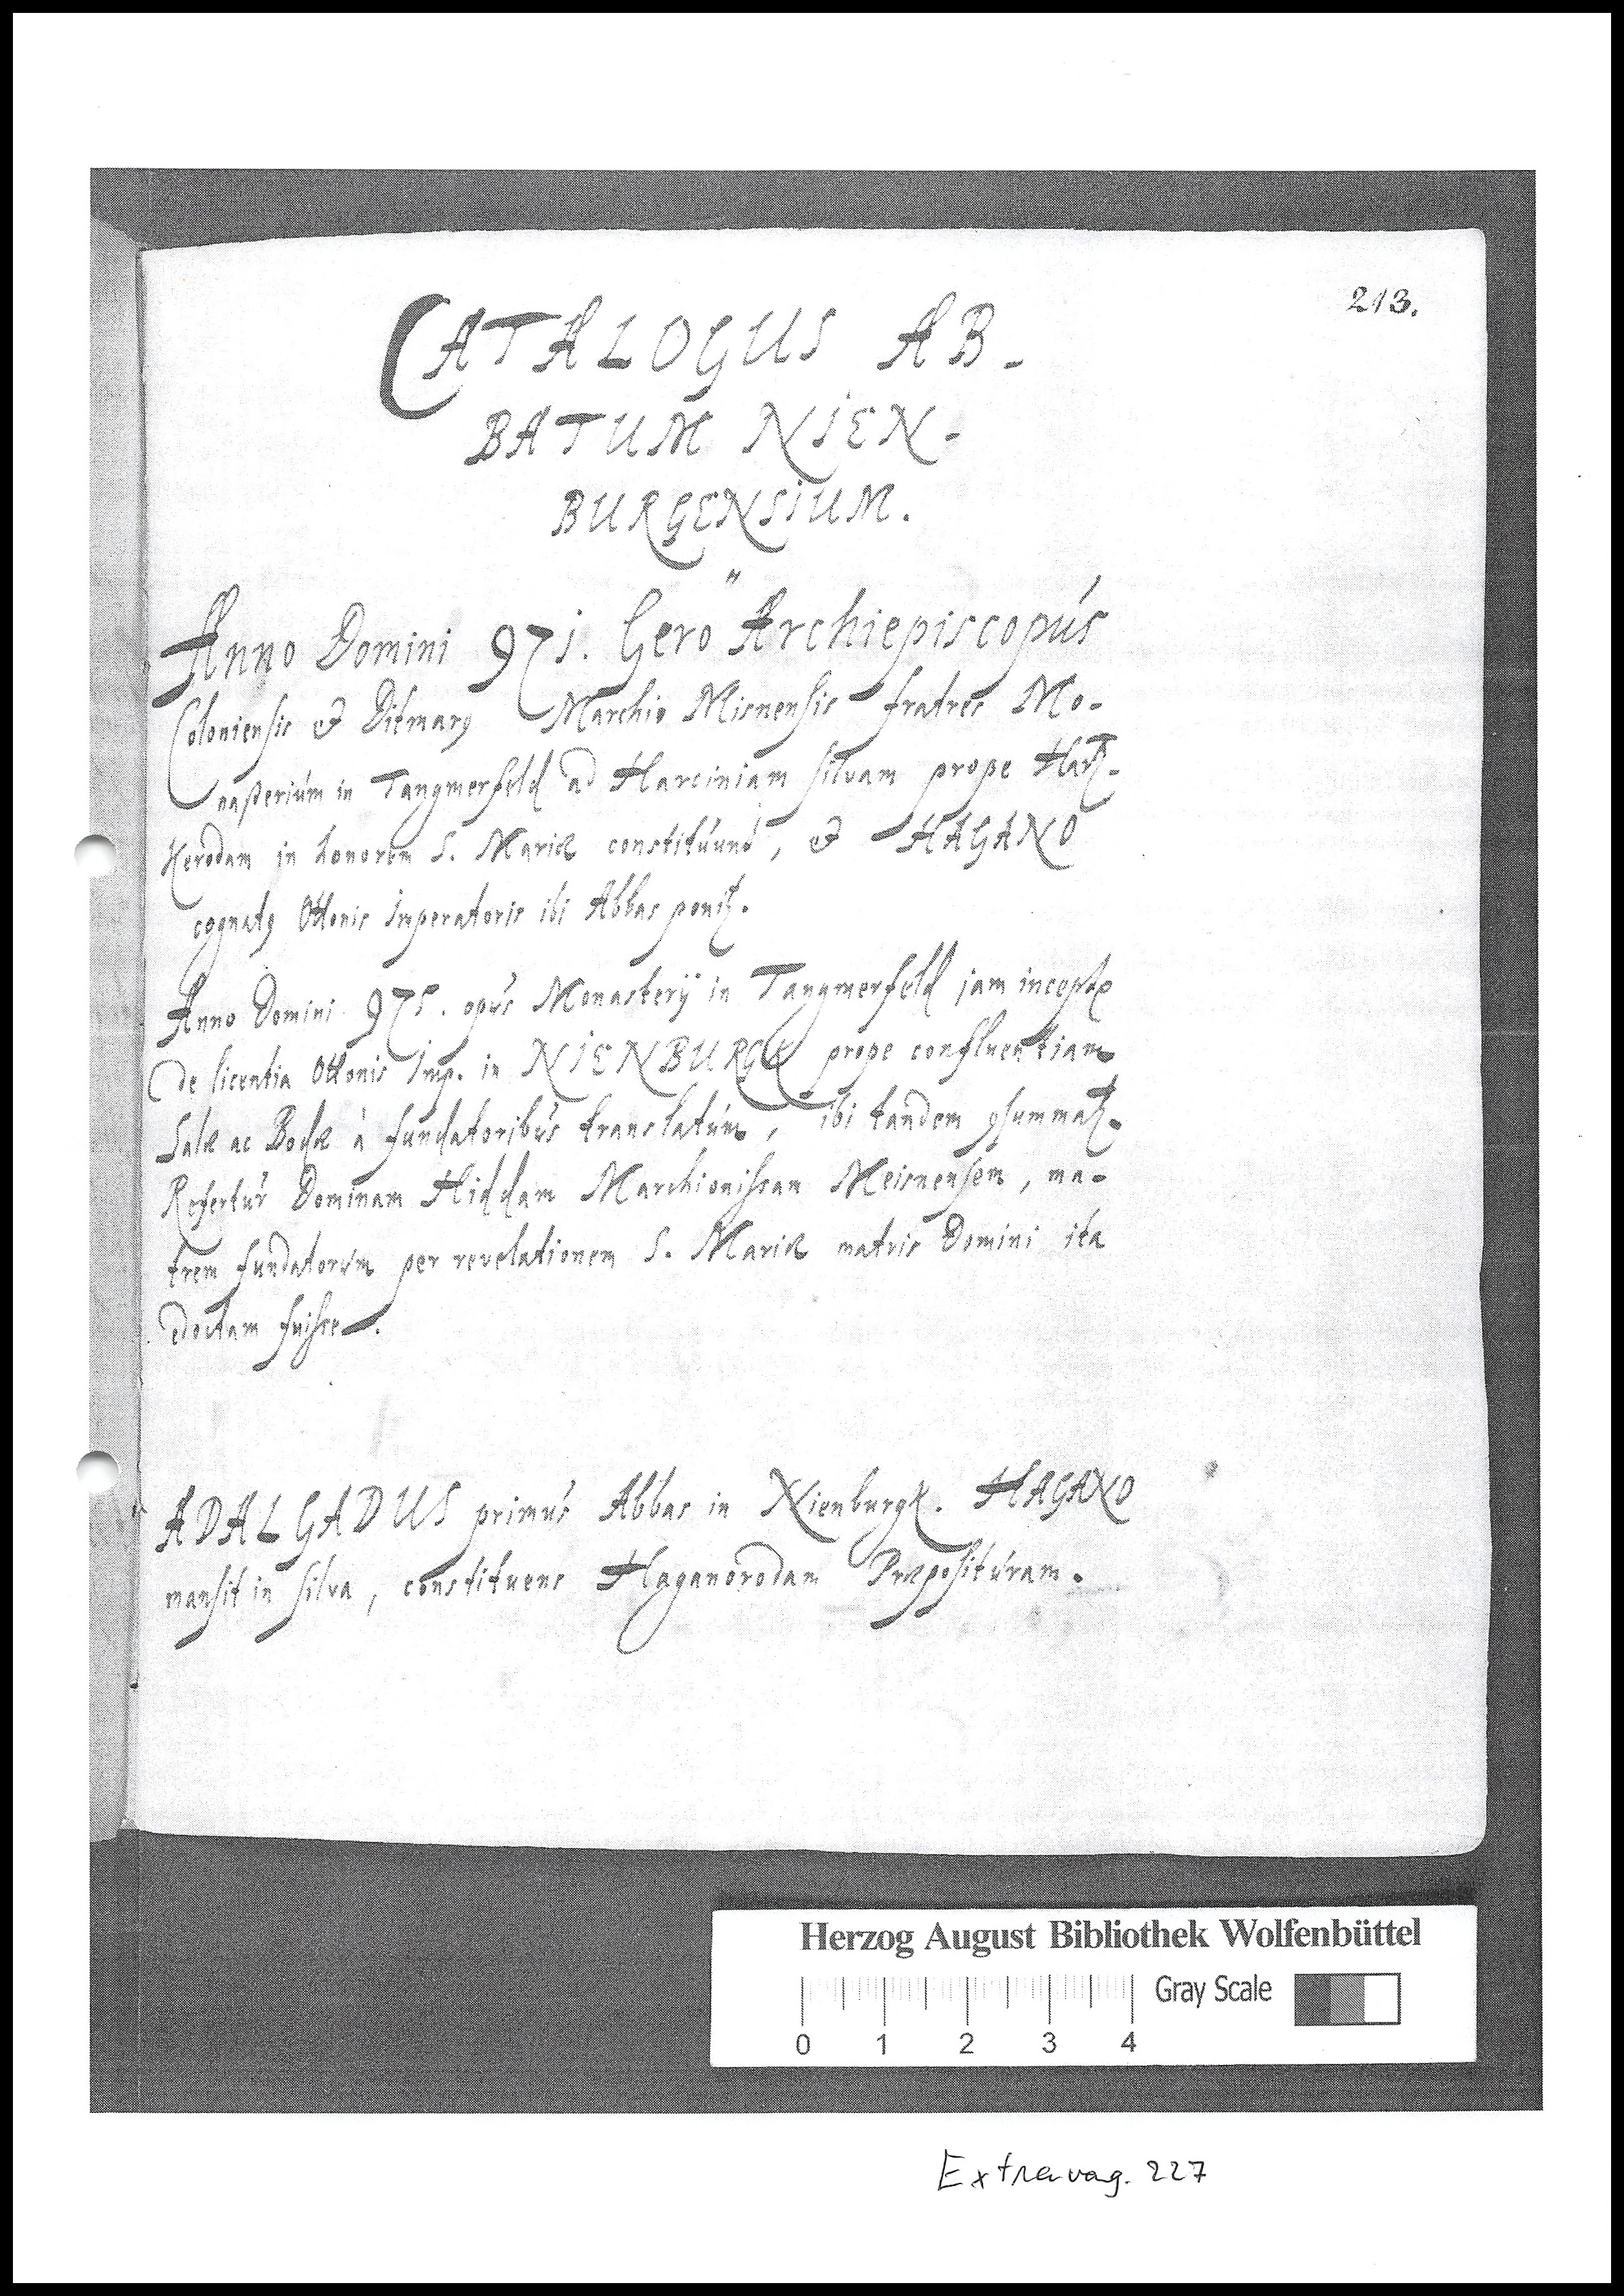 213.
CATALOGUS AB-
BATUM NIEN-
BURGENSIUM.
Anno Domini 971. Gero Archiepiscopus
Coloniensis & Ditmarꝰ Marchio Misnensis fratres Mo-
nasterium in Tangmerfeld ad Harciniam silvam prope Hartz-
Kerodam in honorem S. Mariæ constituunt, & HAGANO
cognatꝰ Ottonis Imperatoris ibi Abbas ponitꝛ.
Anno Domini 975. opus Monasterij in Tangmerfeld jam inceptꝫ
de licentia Ottonis Imp. in NIENBURGK prope confluentiam
Salæ ac Bodæ à fundatoribus translatum, ibi tandem ꝯsummatꝛ.
Refertur Dominam Hiddam Marchionissan Meisnensem, ma-
trem fundatorum per revelationem S. Mariæ matris Domini ita
doctam fuisse.
ADALGADUS primus Abbas in Nienburgk. HAGANO
mansit in silva, constituens Haganorodam Præposituram.
Herzog August Bibliothek Wolfenbüttel
Gray Scale
0 1 2 3 4
Extravag. 227